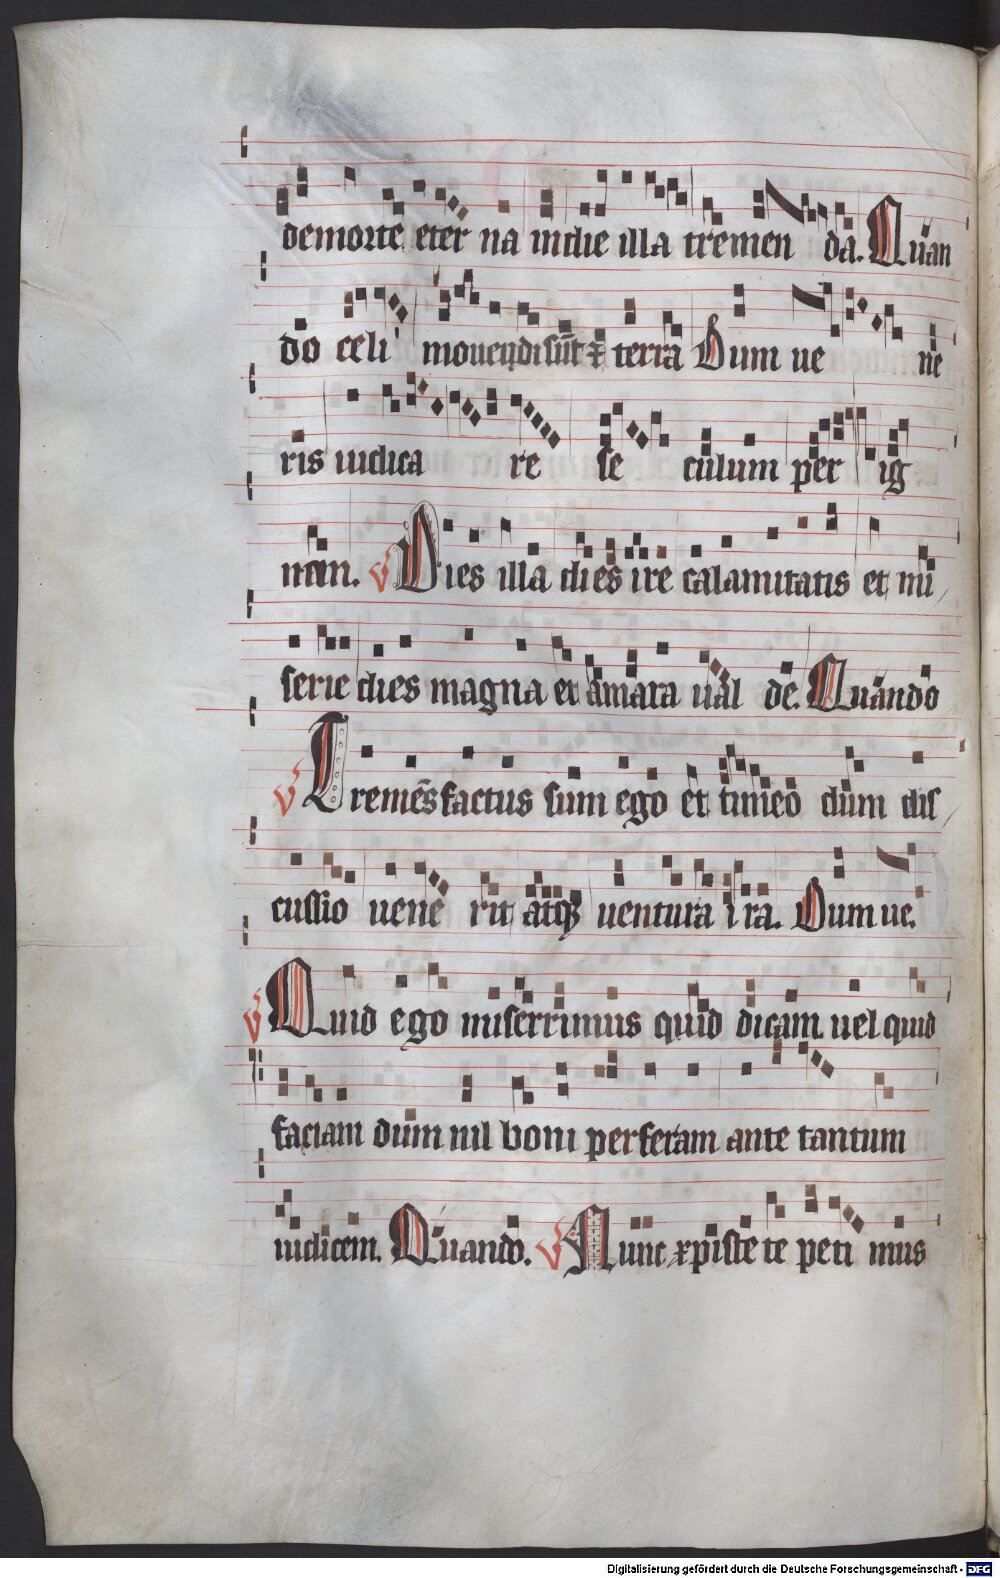 de morte eter na in die illa tremen da. Quan
do celi movendi sūt ⁊ terra Dum ve ne
ris iudica re se culum per ig
nem. V Dies illa dies ire calamitatis et mi
serie dies magna et amara val de. Quando
V Tremēs factus sum ego et timeo dum dis
cussio vene rit atqꝫ ventura ira. Dum ve.
V Quid ego miserrimus quid dicam vel quid
faciam dum nil boni perferam ante tantum
iudicem. Quando. V Nunc xpiste te peti mus
Digitalisierung gefördert durch die Deutsche Forschungsgemeinschaft - DFG